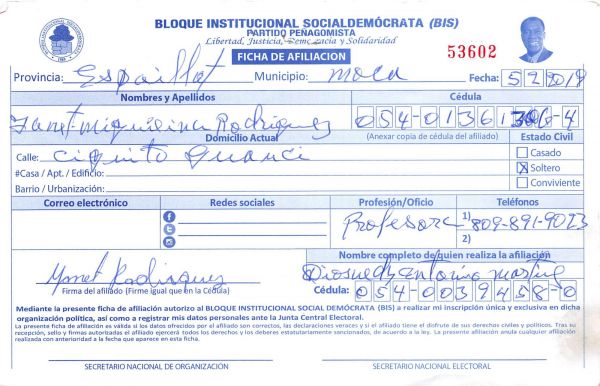 BLOQUE INSTITUCIONAL SOCIALDEMÓCRATA (BIS)
PARTIDO PEÑAGOMISTA
Libertad, Justicia, Democracia y Solidaridad
FICHA DE AFILIACION
53602
Provincia: Espaillat Municipio: Moca Fecha: 5 2 2018
Nombres y Apellidos Cédula
Miguelina Rodriguez 054-0136136-4
Domicilio Actual (Anexar copia de cédula del afiliado) Estado Civil
Calle:
Casado
#Casa / Apt. / Edificio: X Soltero
Barrio / Urbanización: Conviviente
Correo electrónico Redes sociales Profesión/Oficio Teléfonos
Profesora 1) 809-891-9023
2)
Nombre completo de quien realiza la afiliación
Rodriguez Antonio
Firma del afiliado (Firme igual que en la Cédula) Cédula: 054-0039458-0
Mediante la presente ficha de afiliación autorizo al BLOQUE INSTITUCIONAL SOCIAL DEMÓCRATA (BIS) a realizar mi inscripción única y exclusiva en dicha
organización política, así como a registrar mis datos personales ante la Junta Central Electoral.
La presente ficha de afiliación es válida si los datos ofrecidos por el afiliado son correctos, las declaraciones veraces y si el afiliado tiene el disfrute de sus derechos civiles y políticos. Tras su
recepción, sello y firmas autorizadas el afiliado ejercerá todos los derechos y los deberes estatutariamente sancionados, de acuerdo a la ley. La presente afiliación anula cualquier afiliación
realizada con anterioridad a la fecha que aparece en esta ficha.
SECRETARIO NACIONAL DE ORGANIZACIÓN SECRETARIO NACIONAL ELECTORAL